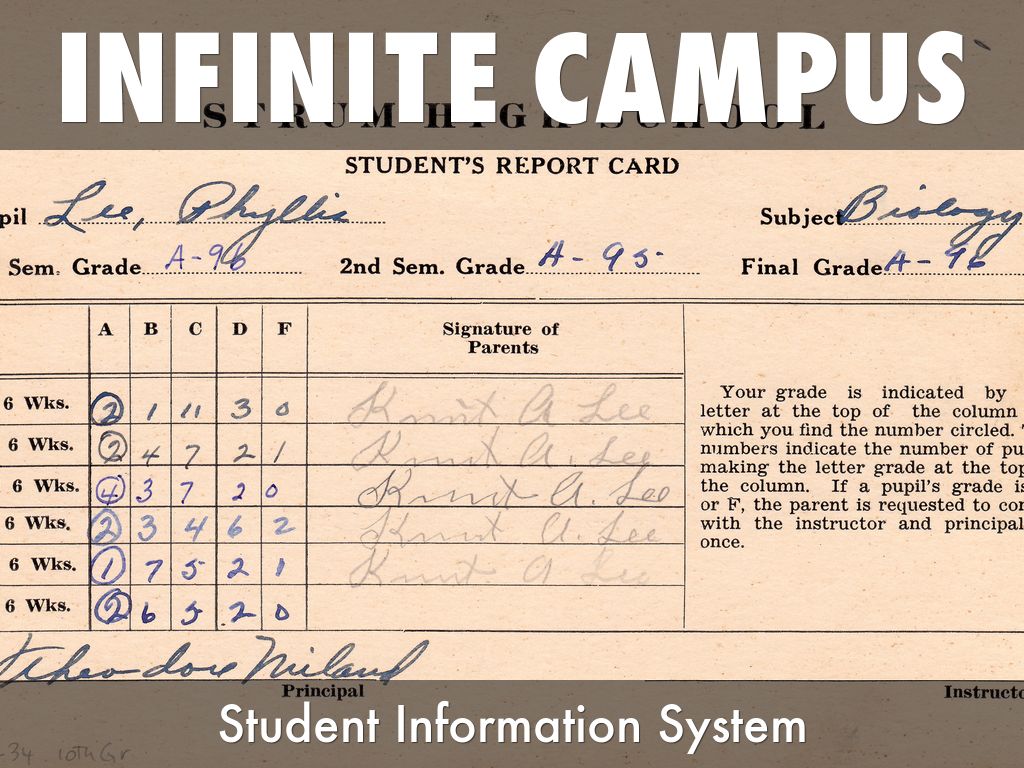 INFINITE CAMPUS
STRUM HIGH SCHOOL
STUDENT'S REPORT CARD
pil Lee, Phyllis Subject Biology
Sem. Grade A-96 2nd Sem. Grade A-95 Final Grade A-96
A B C D F Signature of
Parents
6 Wks. 2 1 11 3 0 Knut A Lee
6 Wks. 2 4 7 2 1 Knut A. Lee
6 Wks. 4 3 7 2 0 Knut A. Lee
6 Wks. 2 3 4 6 2 Knut A. Lee
6 Wks. 1 7 5 2 1 Knut A Lee
6 Wks. 2 6 5 2 0
Your grade is indicated by
letter at the top of the column
which you find the number circled.
numbers indicate the number of pu
making the letter grade at the top
the column. If a pupil's grade is
or F, the parent is requested to con
with the instructor and principal
once.
Theodore Niland
Principal Instructo
Student Information System
-34 10th Gr